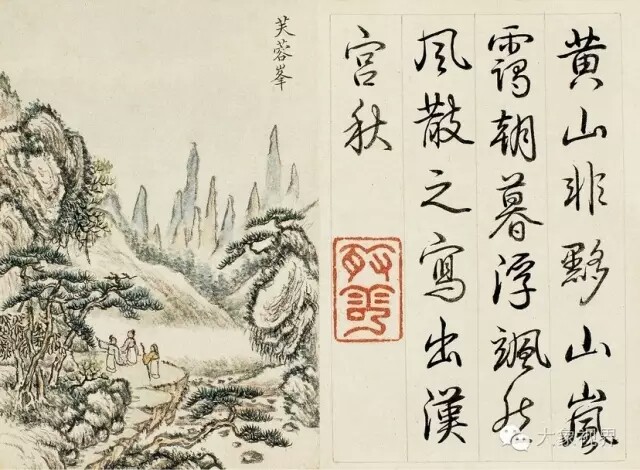 黄山非黟山嵐
靄朝暮浮颯然
風散之寫出漢
宫秋
芙蓉峯
大象视界